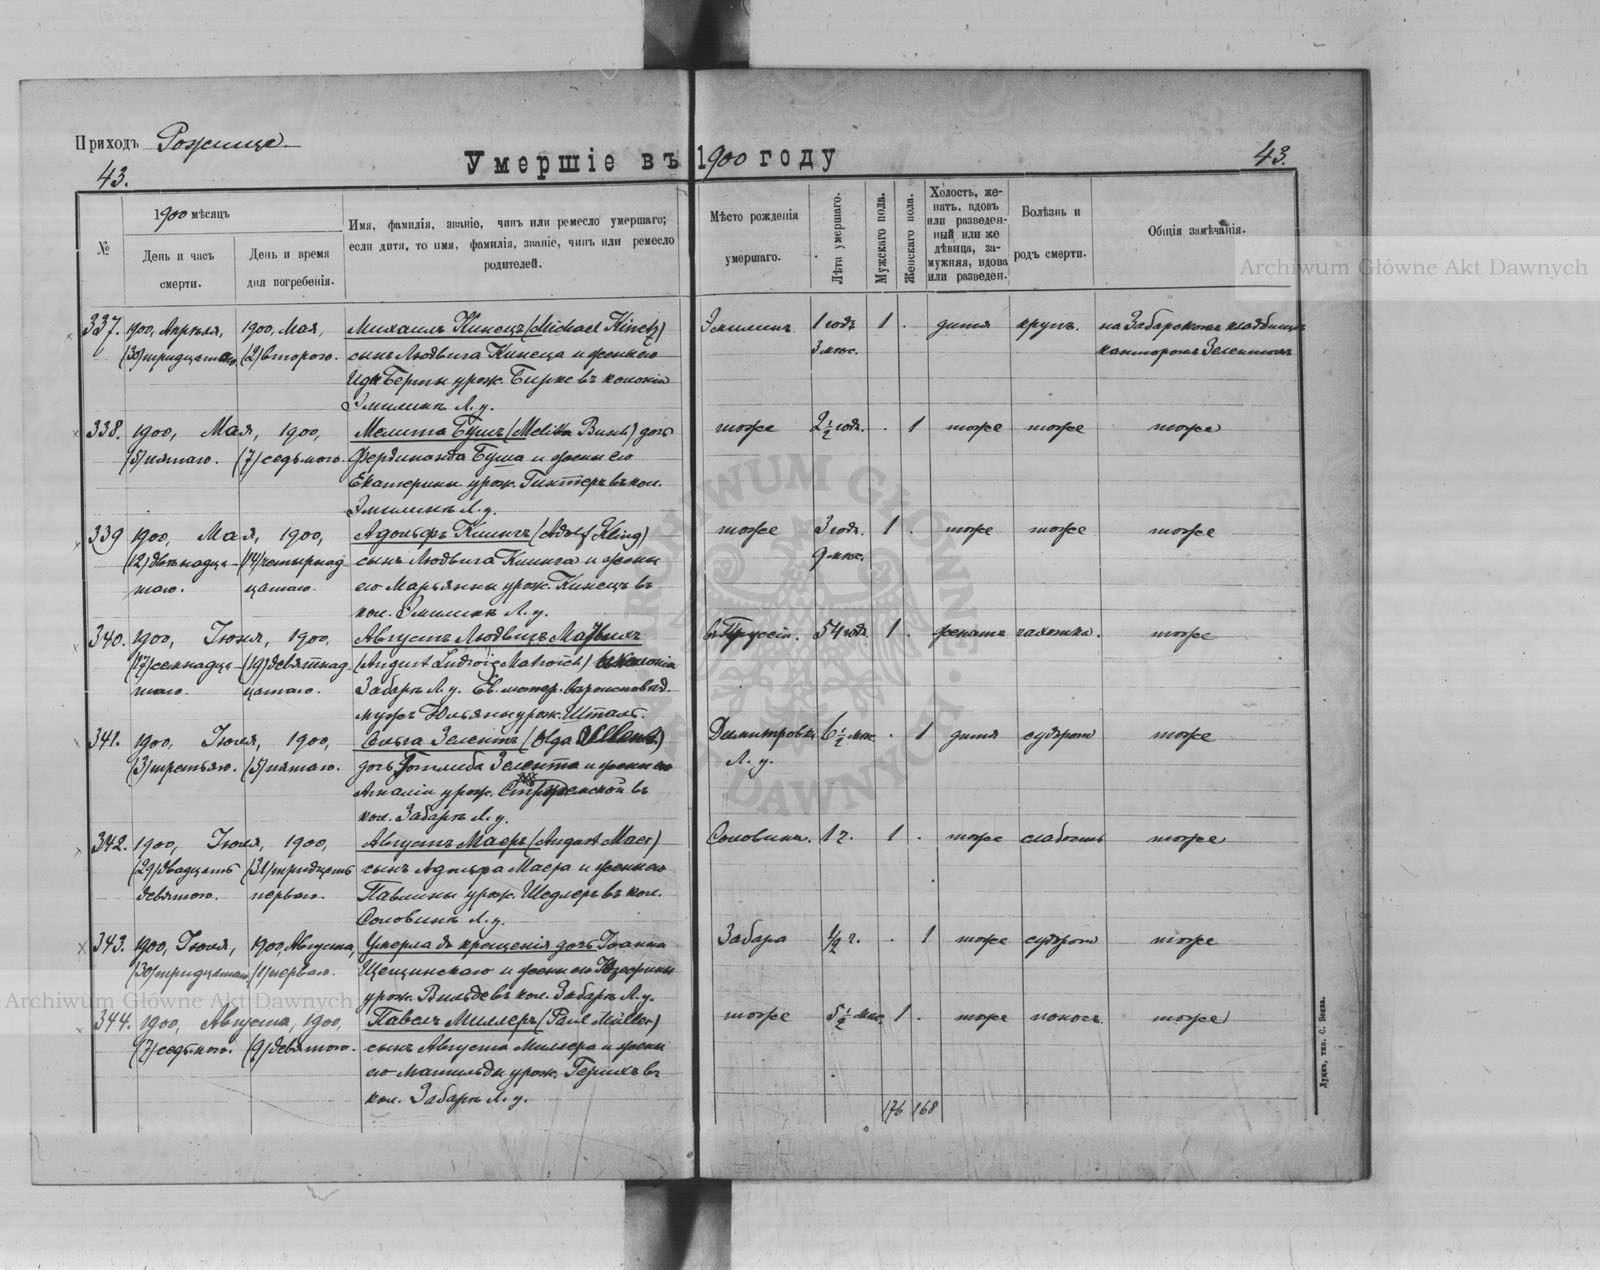 Приходъ Рожище
Умершіе въ 1900 году
43.
43.
№
1900 мѣсяцъ
День и часъ смерти.
День и время дня погребенія.
Имя, фамилія, званіе, чинъ или ремесло умершаго;
если дитя, то имя, фамилія, званіе, чинъ или ремесло
родителей.
Мѣсто рожденія
умершаго.
Лѣта умершаго.
Мужскаго пола.
Женскаго пола.
Холостъ, же-
натъ, вдовъ
или разведен-
ный или же
дѣвица, за-
мужняя, вдова
или разведен.
Болѣзнь и
родъ смерти.
Общія замѣчанія.
337. 1900, Апрѣля, 1900, Мая, Михаилъ Кинецъ (Michael Kinetz) Эмилинъ 1 годъ 1 . дитя крупъ. на Забарскомъ кладбищѣ
(30) тридцатаго (2) второго. сынъ Людвига Кинеца и жены его 3 мѣс. канторомъ Зелентомъ
Иды Берты урож. Бирке въ колоніи
Эмилинъ Л. у.
338. 1900, Мая, 1900, Мелита Бушъ (Melitta Busch) дочь тоже 2 1/2 года. . 1 тоже тоже тоже
(5) пятаго. (7) седьмого. Фердинанда Буша и жены его
Екатерины урож. Гинтеръ въ кол.
Эмилинъ Л. у.
339 1900, Мая, 1900, Адольфъ Клингъ (Adolf Kling) тоже 3 года. 1 . тоже тоже тоже
(12) двѣнадца- (14) четырнад- сынъ Людвига Клинга и жены 9 мѣс.
таго. цатаго. его Марьянны урож. Кинецъ въ
кол. Эмилинъ Л. у.
340. 1900, Іюня, 1900, Августъ Людвигъ въ Пруссіи. 54 года. 1 . женатъ чахотка. тоже
(17) семнадца- (19) девятнад- (August Ludwig
таго. цатаго. Забара Л. у. Ев. лютер.
мужъ Юльяны урож. Шталь.
341. 1900, Іюля, 1900, Ольга Зелентъ (Olga Димитровка 6 1/2 мѣс. . 1 дитя судорога тоже
(3) третьяго. (5) пятаго. дочь Готлиба Зелента и жены его Л. у.
Амаліи урож. въ
кол. Забара Л. у.
342. 1900, Іюля, 1900, Августъ Маеръ (August Maer) Соловинъ. 1 г. 1 . тоже слабость тоже
(29) двадцать (31) тридцать сынъ Адольфа Маера и жены его
девятого. перваго. Павлины урож. Шедлеръ въ кол.
Соловинъ Л. у.
343. 1900, Іюля, 1900, Августа, Умерла до крещенія дочь Іоанна Забара 1/2 г. . 1 тоже судорога тоже
(30) тридцатаго (1) перваго. Щепинскаго и жены его Юзефины
урож. Вильде въ кол. Забара Л. у.
344. 1900, Августа, 1900, Павелъ Миллеръ (Paul Müller) тоже 5 1/2 мѣс. 1 . тоже поносъ тоже
(7) седьмого. (9) девятого. сынъ Августа Миллера и жены
его Матильды урож. въ
кол. Забара Л. у.
176 168
Луцкъ, тип. С. Бокна.
Archiwum Główne Akt Dawnych
Archiwum Główne Akt Dawnych
ARCHIWUM GŁÓWNE AKT DAWNYCH